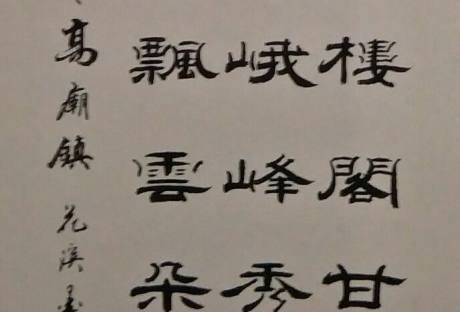 樓閣甘
峨峰秀
飄雲朵
高廟鎮花溪